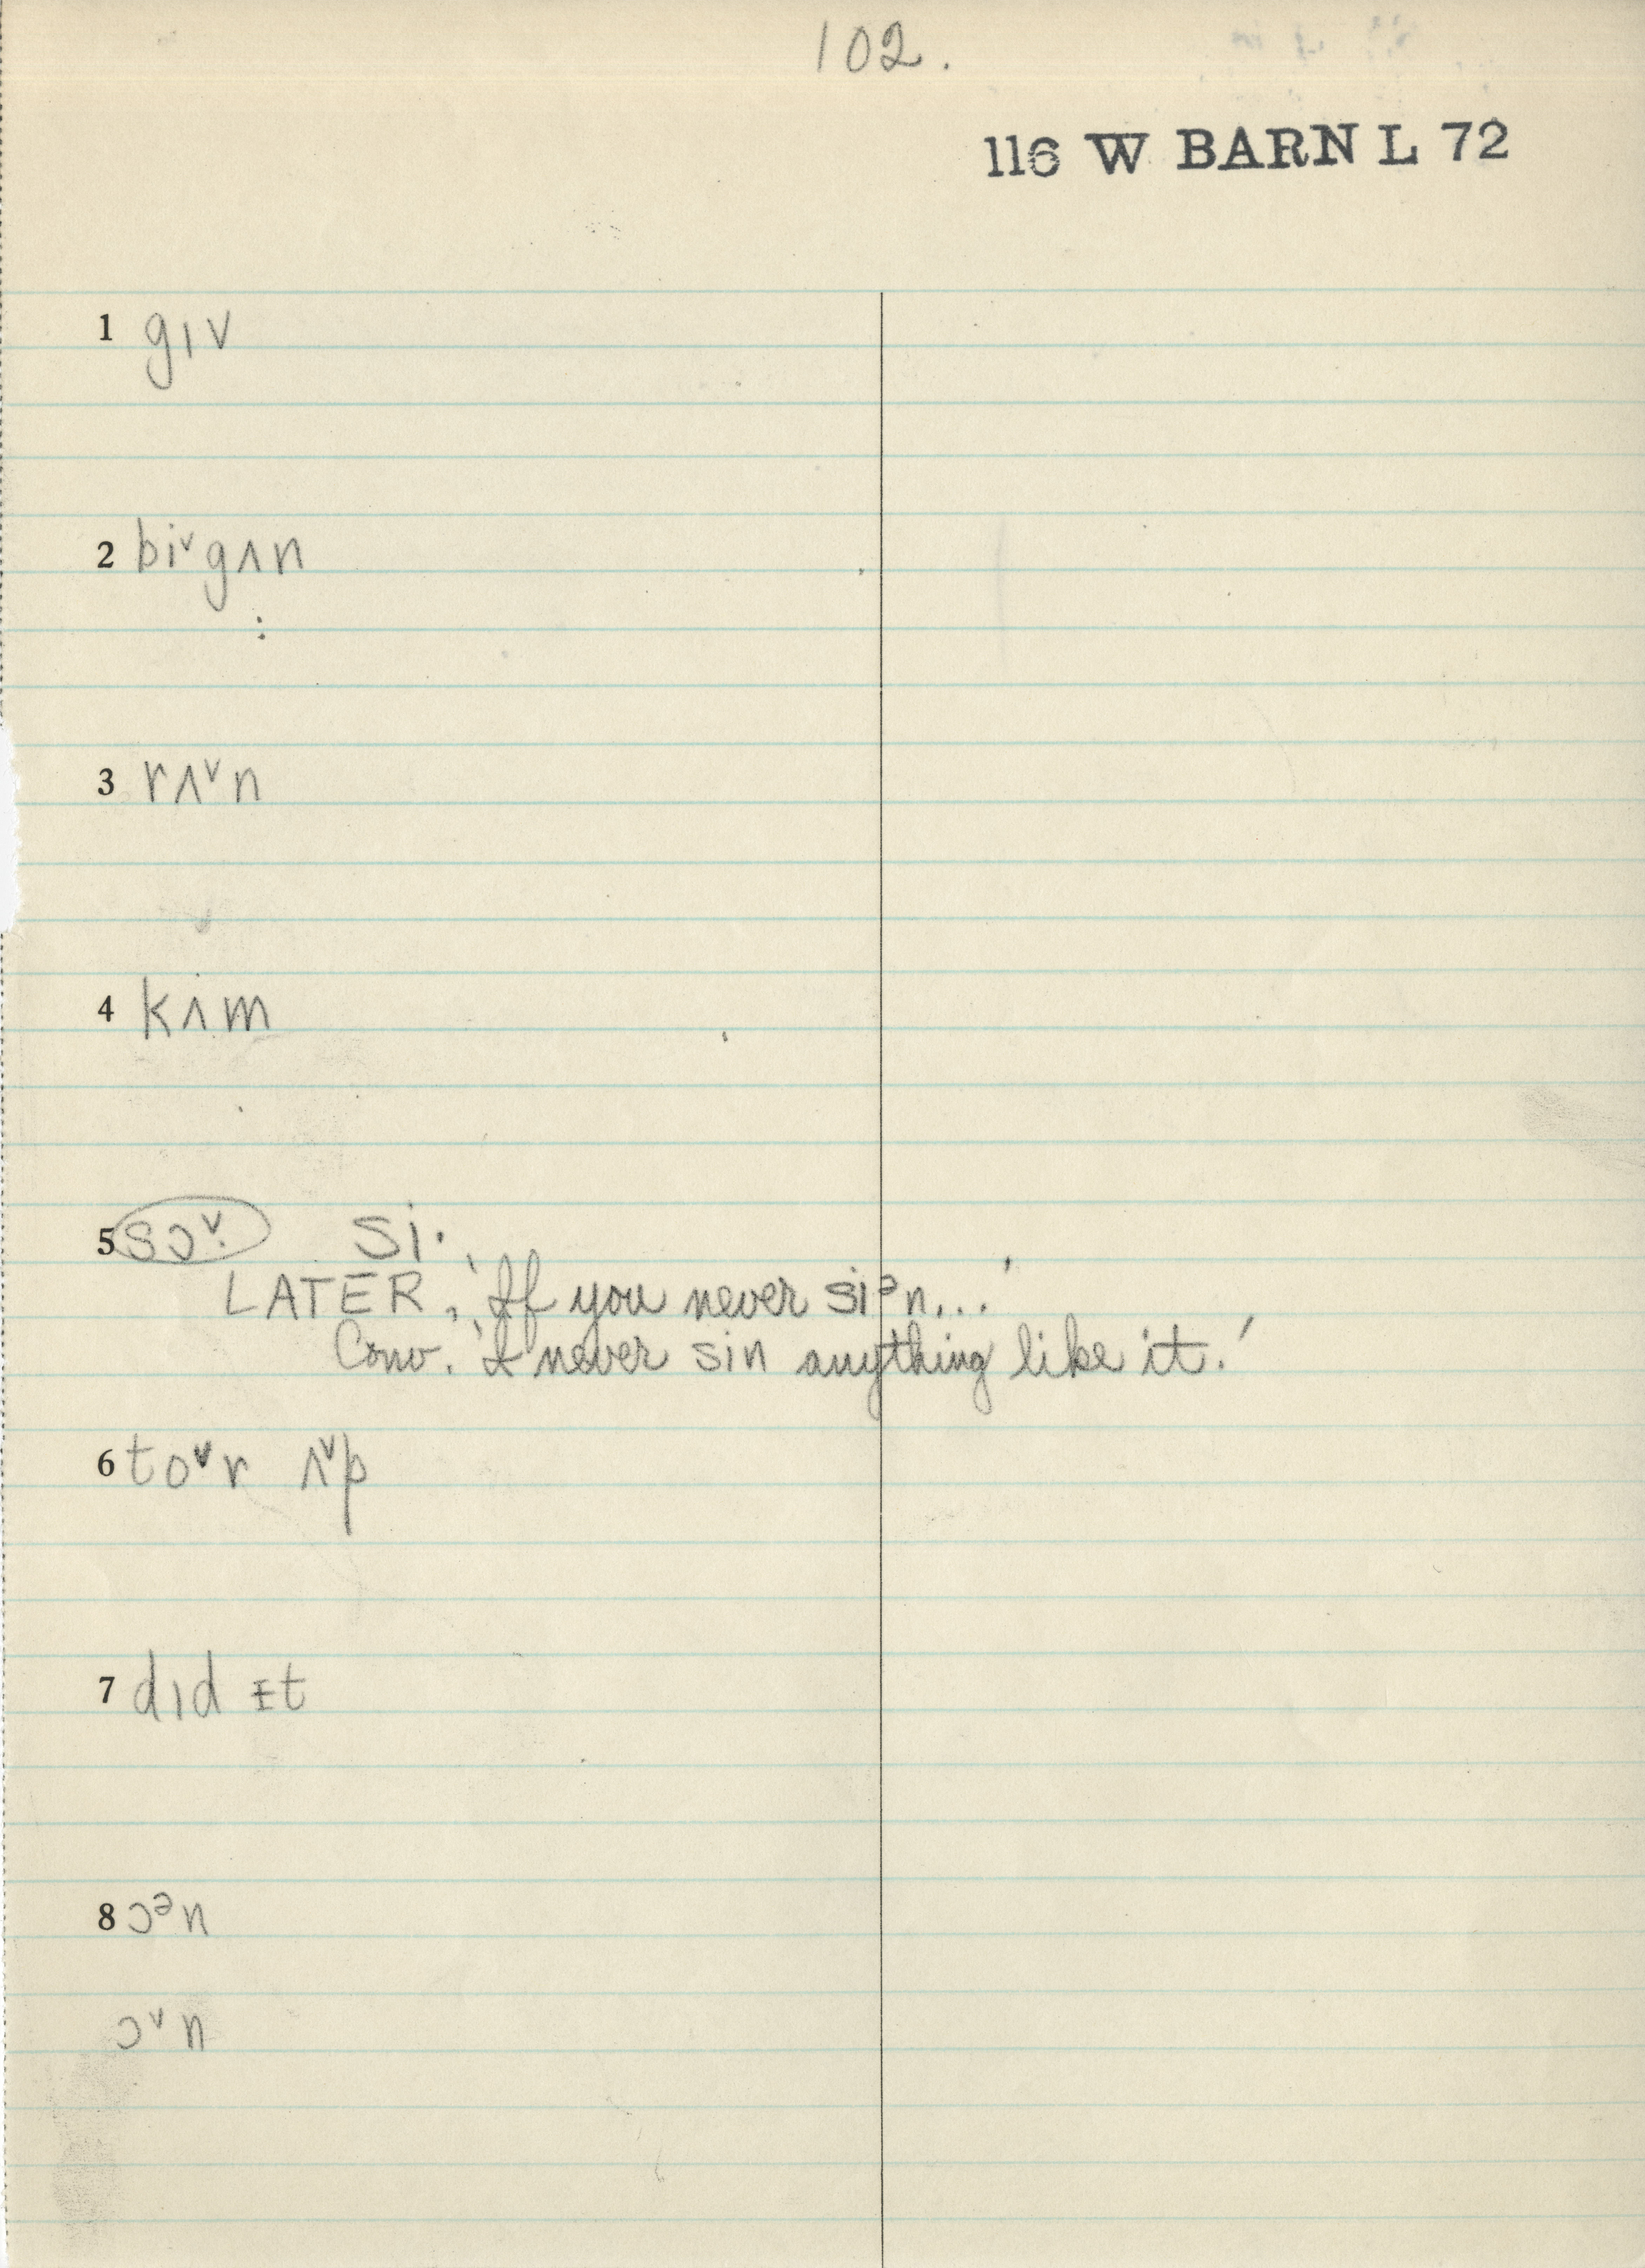 102.
116 W BARN L 72
1 gɪv
2 biᵛgʌn
3 rʌᵛn
4 kʌm
5 sɔᵛ· si·
LATER, 'If you never siᵊn...'
Conv. 'I never sin anything like it.'
6 toᵛr ʌᵛp
7 dɪd ɪt
8 ɔᵊn
ɔᵛn